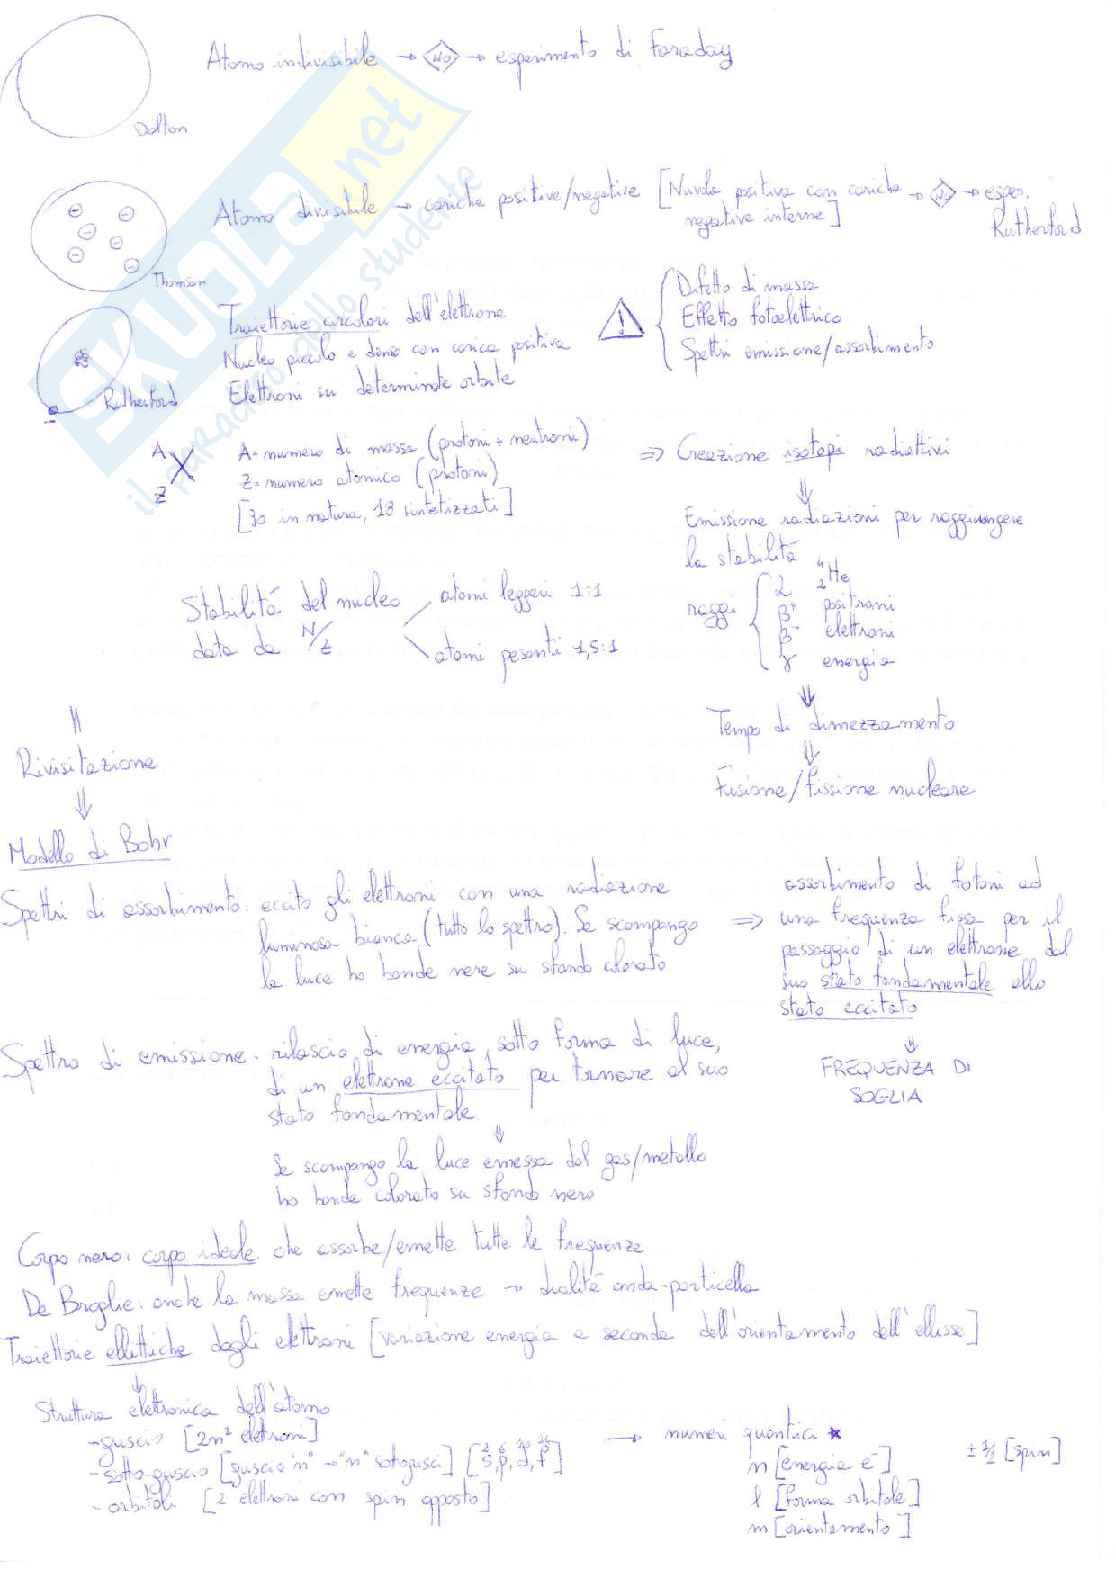 Atomo indivisibile → No → esperimento di Faraday
Dalton
Atomo divisibile → cariche positive/negative [Nuvola positiva con cariche → No → esper.
negative interne] Rutherford
Thomson
SKUOLA.net
il paradiso dello studente
Traiettorie circolari dell'elettrone
Nucleo piccolo e denso con carica positiva
Elettroni su determinate orbite
Rutherford
! { Difetto di massa
Effetto fotoelettrico
Spettri emissione/assorbimento
A
Z X
A = numero di massa (protoni + neutroni)
Z = numero atomico (protoni)
[90 in natura, 18 sintetizzati]
⇒ Creazione isotopi radiattivi
⇓
Emissione radiazioni per raggiungere
la stabilità
raggi { α ⁴₂He
β⁺ positroni
β⁻ elettroni
γ energia
⇓
Tempo di dimezzamento
⇓
Fusione/fissione nucleare
Stabilità del nucleo
data da N/Z
atomi leggeri 1:1
atomi pesanti 1,5:1
Rivisitazione
⇓
Modello di Bohr
Spettri di assorbimento: eccito gli elettroni con una radiazione
luminosa bianca (tutto lo spettro). Se scompongo
la luce ho bande nere su sfondo colorato
⇒ assorbimento di fotoni ad
una frequenza fissa per il
passaggio di un elettrone dal
suo stato fondamentale allo
stato eccitato
⇓
FREQUENZA DI
SOGLIA
Spettro di emissione: rilascio di energia, sotto forma di luce,
di un elettrone eccitato per tornare al suo
stato fondamentale
⇓
Se scompongo la luce emessa dal gas/metallo
ho bande colorate su sfondo nero
Corpo nero: corpo ideale che assorbe/emette tutte le frequenze
De Broglie: anche la massa emette frequenze → dualità onda-particella
Traiettorie ellittiche degli elettroni [variazione energia a seconda dell'orientamento dell'ellisse]
⇓
Struttura elettronica dell'atomo
- guscio [2n² elettroni]
- sotto-guscio [guscio "n" → "n" sottogusci] [s², p⁶, d¹⁰, f¹⁴]
- orbitali [2 elettroni con spin opposto]
→ numeri quantici *
n [energia e⁻]
l [forma orbitale]
m [orientamento]
± 1/2 [spin]